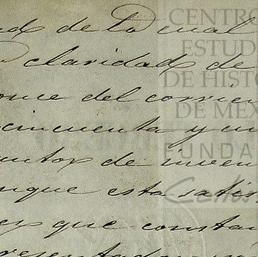 de la cual
claridad de
once del corrien
cincuenta y un
autor de inven
nque esta satis
que consta
CENTRO
ESTUD
DE HISTO
DE MEX
FUNDA